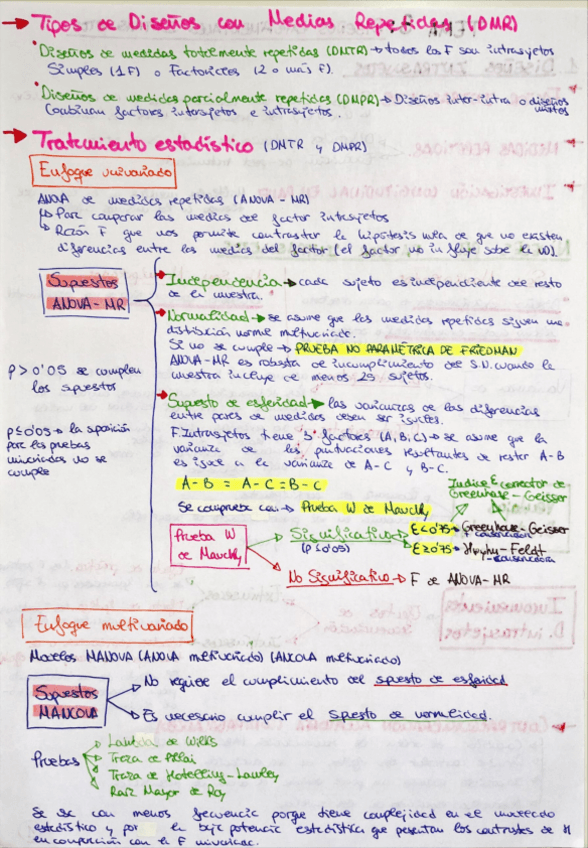 → Tipos de Diseños con Medias Repetidas (DMR)
· Diseños de medidas totalmente repetidas (DMTR) → todos los F son intrasujetos
Simples (1F) o Factoriales (2 o más F).
· Diseños de medidas parcialmente repetidas (DMPR) → Diseños inter-intra o diseños mixtos
Combinan factores intersujetos e intrasujetos.
→ Tratamiento estadístico (DMTR y DMPR)
Enfoque univariado
ANOVA de medidas repetidas (ANOVA-MR)
↳ Para comparar las medias del factor intrasujetos
↳ Razón F que nos permite contrastar la hipótesis nula de que no existen
diferencias entre las medias del factor (el factor no influye sobre la VD).
Supuestos
ANOVA-MR
Independencia → cada sujeto es independiente del resto
de la muestra.
Normalidad → se asume que las medidas repetidas siguen una
distribución normal multivariada.
Si no se cumple → PRUEBA NO PARAMÉTRICA DE FRIEDMAN
ANOVA-MR es robusta al incumplimiento del S.N. cuando la
muestra incluye de menos 25 sujetos.
p > 0'05 se cumplen
los supuestos
p ≤ 0'05 →
por las pruebas
no se
cumple
Supuesto de esfericidad → las varianzas de las diferencias
entre pares de medidas deben ser iguales.
F. Intrasujetos tiene 3 factores (A, B, C) → se asume que la
varianza de las puntuaciones resultantes de restar A-B
es igual a la varianza de A-C y B-C.
A-B = A-C = B-C
Se comprueba con → Prueba W de Mauchly
Indice ε corrector de
Greenhouse-Geisser
Prueba W
de Mauchly
Significativo →
(p ≤ 0'05)
ε<0'75 → Greenhouse-Geisser
ε≥0'75 → Huynh-Feldt
No Significativo → F de ANOVA-MR
Enfoque multivariado
Modelos MANOVA (ANOVA multivariado) (ANCOVA multivariado)
Supuestos
MANCOVA
No requiere el cumplimiento del supuesto de esfericidad
Es necesario cumplir el supuesto de normalidad.
Pruebas
Lambda de Wilks
Traza de Pillai
Traza de Hotelling-Lawley
Raíz Mayor de Roy
Se usa con menos frecuencia porque tiene complejidad en el
estadístico y por la baja potencia estadística que presentan los contrastes de
en comparación con la F univariada.